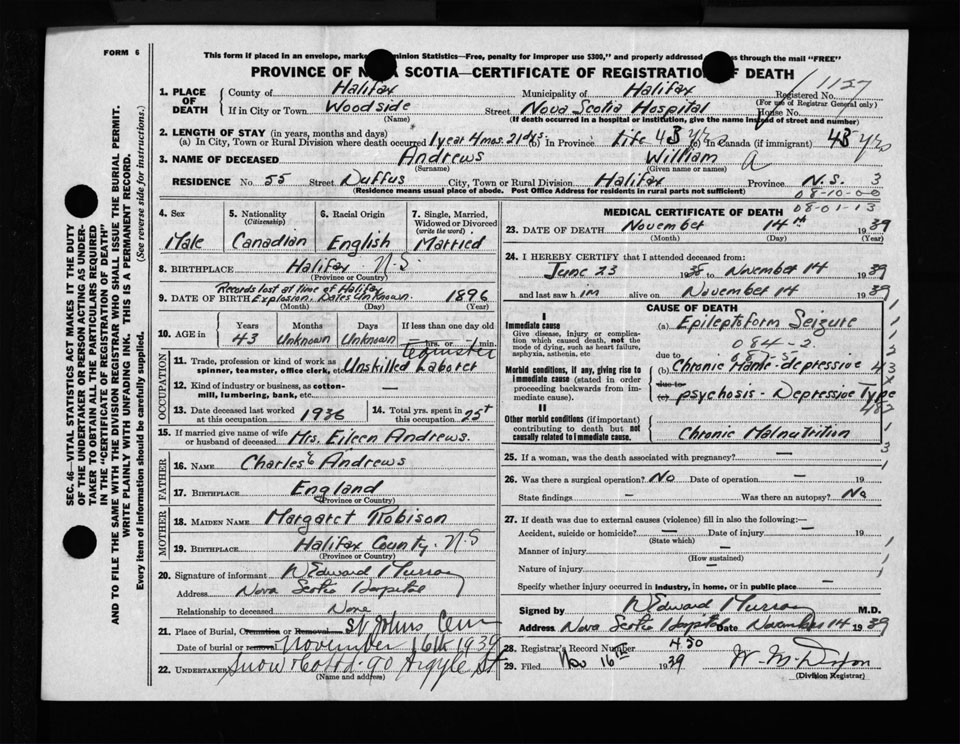 FORM 6
This form if placed in an envelope, marked Dominion Statistics—Free, penalty for improper use $300," and properly addressed passes through the mail "FREE"
PROVINCE OF NOVA SCOTIA—CERTIFICATE OF REGISTRATION OF DEATH
1157
1. PLACE OF DEATH
County of Halifax Municipality of Halifax Registered No.
(For use of Registrar General only)
If in City or Town Woodside Street Nova Scotia Hospital House No.
(Name) (If death occurred in a hospital or institution, give the name instead of street and number)
2. LENGTH OF STAY (in years, months and days)
(a) In City, Town or Rural Division where death occurred 1 year 4 mos. 21 dys. (b) In Province life 43 yrs (c) In Canada (if immigrant) 43 yrs
3. NAME OF DECEASED Andrews William A
(Surname) (Given name or names)
RESIDENCE No. 55 Street Duffus City, Town or Rural Division Halifax Province N.S. 3
(Residence means usual place of abode. Post Office Address for residents in rural parts not sufficient)
08-10-00
08-01-13
4. Sex Male
5. Nationality (Citizenship) Canadian
6. Racial Origin English
7. Single, Married, Widowed or Divorced (write the word) Married
8. BIRTHPLACE Halifax N.S.
(Province or Country)
Records lost at time of Halifax
9. DATE OF BIRTH Explosion. Dates Unknown. 1896
(Month) (Day) (Year)
10. AGE in Years 43 Months Unknown Days Unknown If less than one day
hrs. or min.
OCCUPATION
teamster
11. Trade, profession or kind of work as spinner, teamster, office clerk, etc. Unskilled Laborer
12. Kind of industry or business, as cotton-mill, lumbering, bank, etc. —
13. Date deceased last worked at this occupation 1936
14. Total yrs. spent in this occupation 25+
15. If married give name of wife or husband of deceased Mrs. Eileen Andrews.
FATHER
16. NAME Charles Andrews
17. BIRTHPLACE England
(Province or Country)
MOTHER
18. MAIDEN NAME Margaret Robison
19. BIRTHPLACE Halifax County. N.S
(Province or Country)
20. Signature of informant W Edward Murray
Address Nova Scotia Hospital
Relationship to deceased None
21. Place of Burial, Cremation or Removal St Johns Cem
Date of burial or removal November 16th 1939
22. UNDERTAKER Snow & Co Ltd. 90 Argyle St
(Name and address)
MEDICAL CERTIFICATE OF DEATH
23. DATE OF DEATH November 14th 1939
(Month) (Day) (Year)
24. I HEREBY CERTIFY that I attended deceased from:
June 23 1938 to November 14 1939
and last saw him alive on November 14 1939
CAUSE OF DEATH
I
Immediate cause
Give disease, injury or complication which caused death, not the mode of dying, such as heart failure, asphyxia, asthenia, etc
(a) Epileptiform Seizure
084-2
due to
Morbid conditions, if any, giving rise to immediate cause (stated in order proceeding backwards from immediate cause).
(b) Chronic Manic-depressive
due to
(c) psychosis - Depressive Type
II
Other morbid conditions (if important) contributing to death but not causally related to immediate cause.
Chronic Malnutrition
25. If a woman, was the death associated with pregnancy? —
26. Was there a surgical operation? No Date of operation — 19
State findings — Was there an autopsy? No
27. If death was due to external causes (violence) fill in also the following:—
Accident, suicide or homicide? — Date of injury — 19
(State which)
Manner of injury —
(How sustained)
Nature of injury —
Specify whether injury occurred in industry, in home, or in public place —
Signed by W Edward Murray M.D.
Address Nova Scotia Hospital Date November 14 1939
28. Registrar's Record Number 450
29. Filed Nov 16th 1939
(Division Registrar)
SEC. 46—VITAL STATISTICS ACT MAKES IT THE DUTY
OF THE UNDERTAKER OR PERSON ACTING AS UNDER-
TAKER TO OBTAIN ALL THE PARTICULARS REQUIRED
IN THE "CERTIFICATE OF REGISTRATION OF DEATH"
AND TO FILE THE SAME WITH THE DIVISION REGISTRAR WHO SHALL ISSUE THE BURIAL PERMIT.
WRITE PLAINLY WITH UNFADING INK. THIS IS A PERMANENT RECORD.
Every item of information should be carefully supplied. (See reverse side for instructions.)